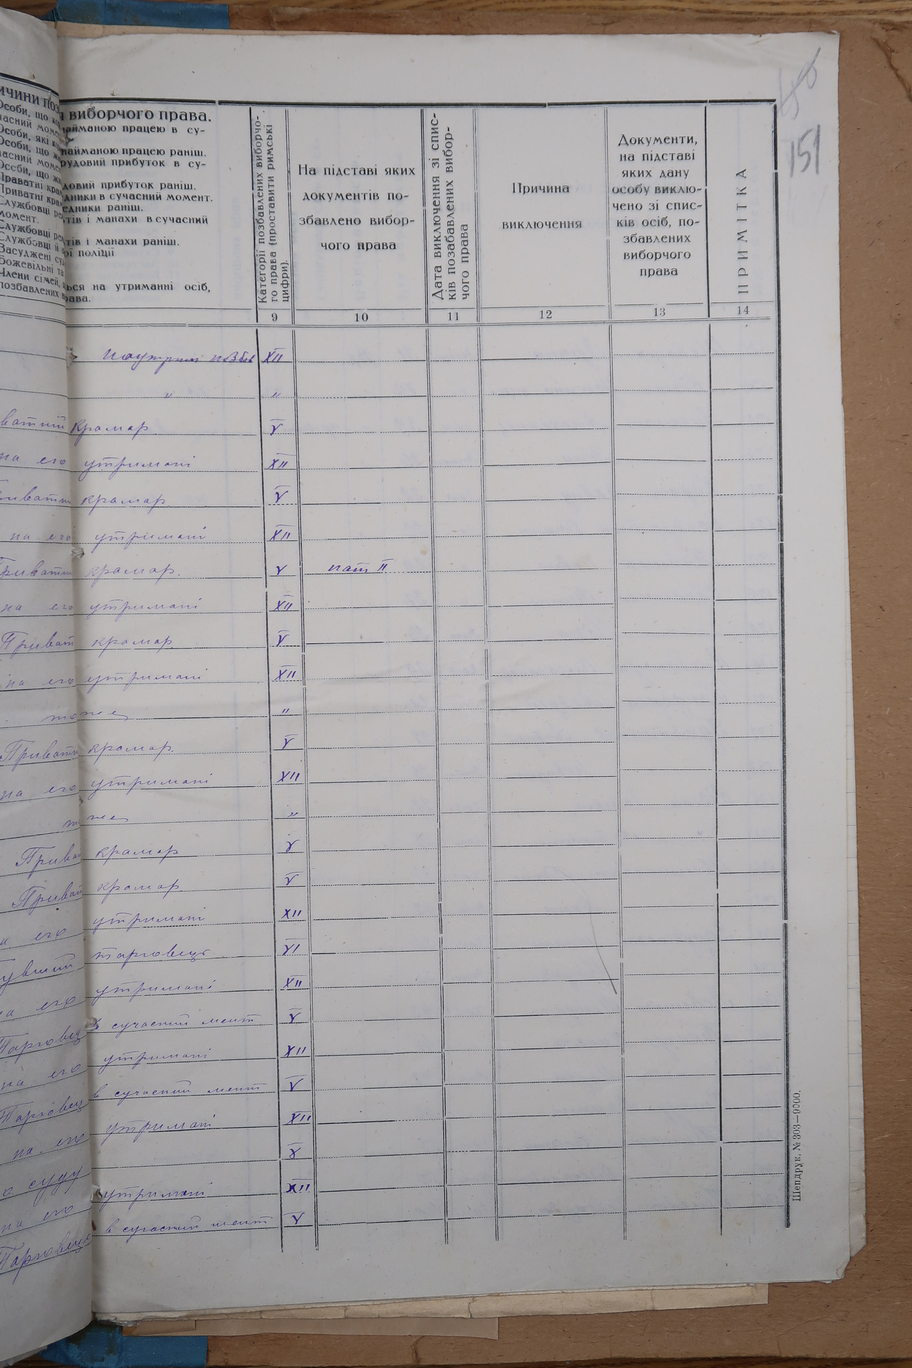 151
ичини поз
виборчого права.
Особи, що
найманою працею в су-
часний мом
Особи, які
найманою працею раніш.
Особи, що
рудовий прибуток в су-
часний моме
Особи, що
довий прибуток раніш.
Приватні кра
дники в сучасний момент.
Приватні
едники раніш.
Службовці
тів і манахи в сучасний
момент.
Службовці
тів і манахи раніш.
Службовці
поліції
Засуджені
Божевільні та
Члени сімей,
ься на утриманні осіб,
позбавлених
рава.
Категорії позбавлених виборчо-
го права (проставити римські
цифри).
На підставі яких
документів по-
збавлено вибор-
чого права
Дата виключення зі спис-
ків позабавлених вибор-
чого права
Причина
виключення
Документи,
на підставі
яких дану
особу виклю-
чено зі спис-
ків осіб, по-
збавлених
виборчого
права
ПРИМІТКА
9 10 11 12 13 14
XII
" "
ватний крамар V
на его утримані XII
крамар V
на его утримані XII
Приватн крамар. V пат II
на его утримані XII
Приват крамар V
на его утримані XII
тоже "
Приватн крамар V
на его утримані XII
тоже "
Прива крамар V
Приват крамар V
на его утримані XII
Бувший торговець VI
на его утримані XII
Торговец в сучасний мент V
на его утримані XII
Торговец в сучасний мент V
на его утримані XII
суду V
на его утримані XII
Торговець в сучасний мент V
Шепдрук, № 303—9000.